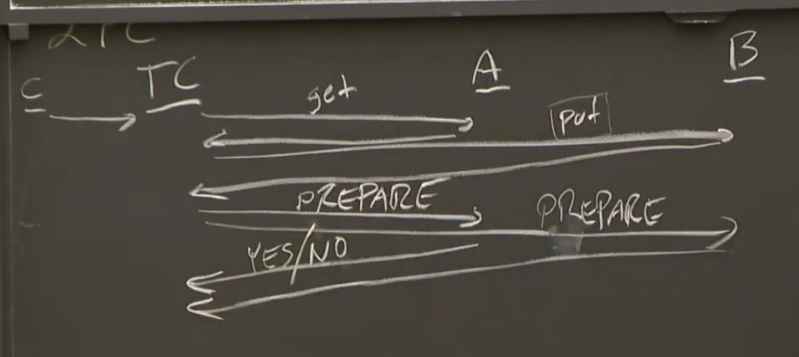 2PC
C TC A B
get
put
PREPARE PREPARE
YES/NO